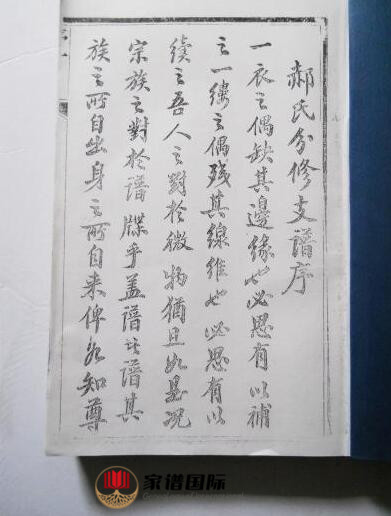 郝氏分修支谱序
一衣之偶缺其邊緣也必思有以補
之一缕之偶残其線维也必思有以
续之吾人之對於微物猶且如是况
宗族之對於谱牒乎盖谱此谱其
族之所自出身之所自来俾各知尊
家谱国际